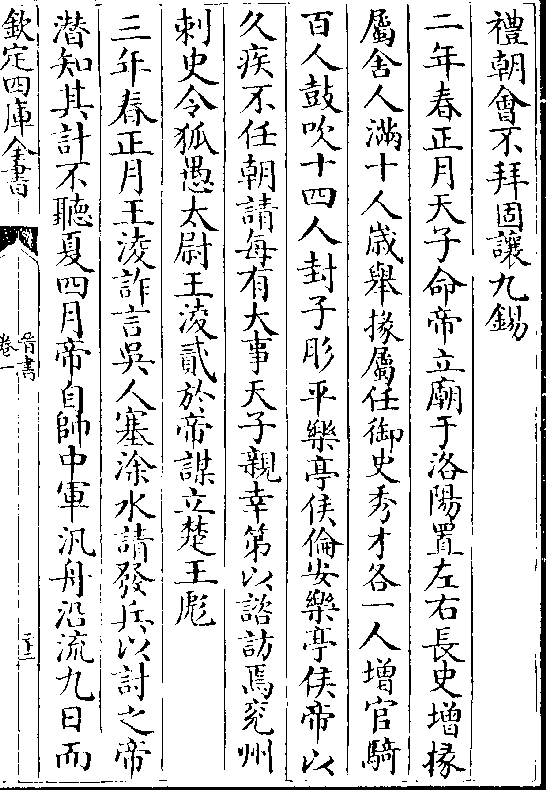 禮朝會不拜固讓九錫
二年春正月天子命帝立廟于洛陽置左右長史增掾
屬舍人滿十人歲舉掾屬任御史秀才各一人增官騎
百人鼓吹十四人封子肜平樂亭侯倫安樂亭侯帝以
久疾不任朝請每有大事天子親幸第以諮訪焉兖州
刺史令狐愚太尉王淩貳於帝謀立楚王彪
三年春正月王淩詐言吳人塞涂水請發兵以討之帝
潜知其計不聽夏四月帝自帥中軍汎舟沿流九日而
欽定四庫全書
晉書
卷一